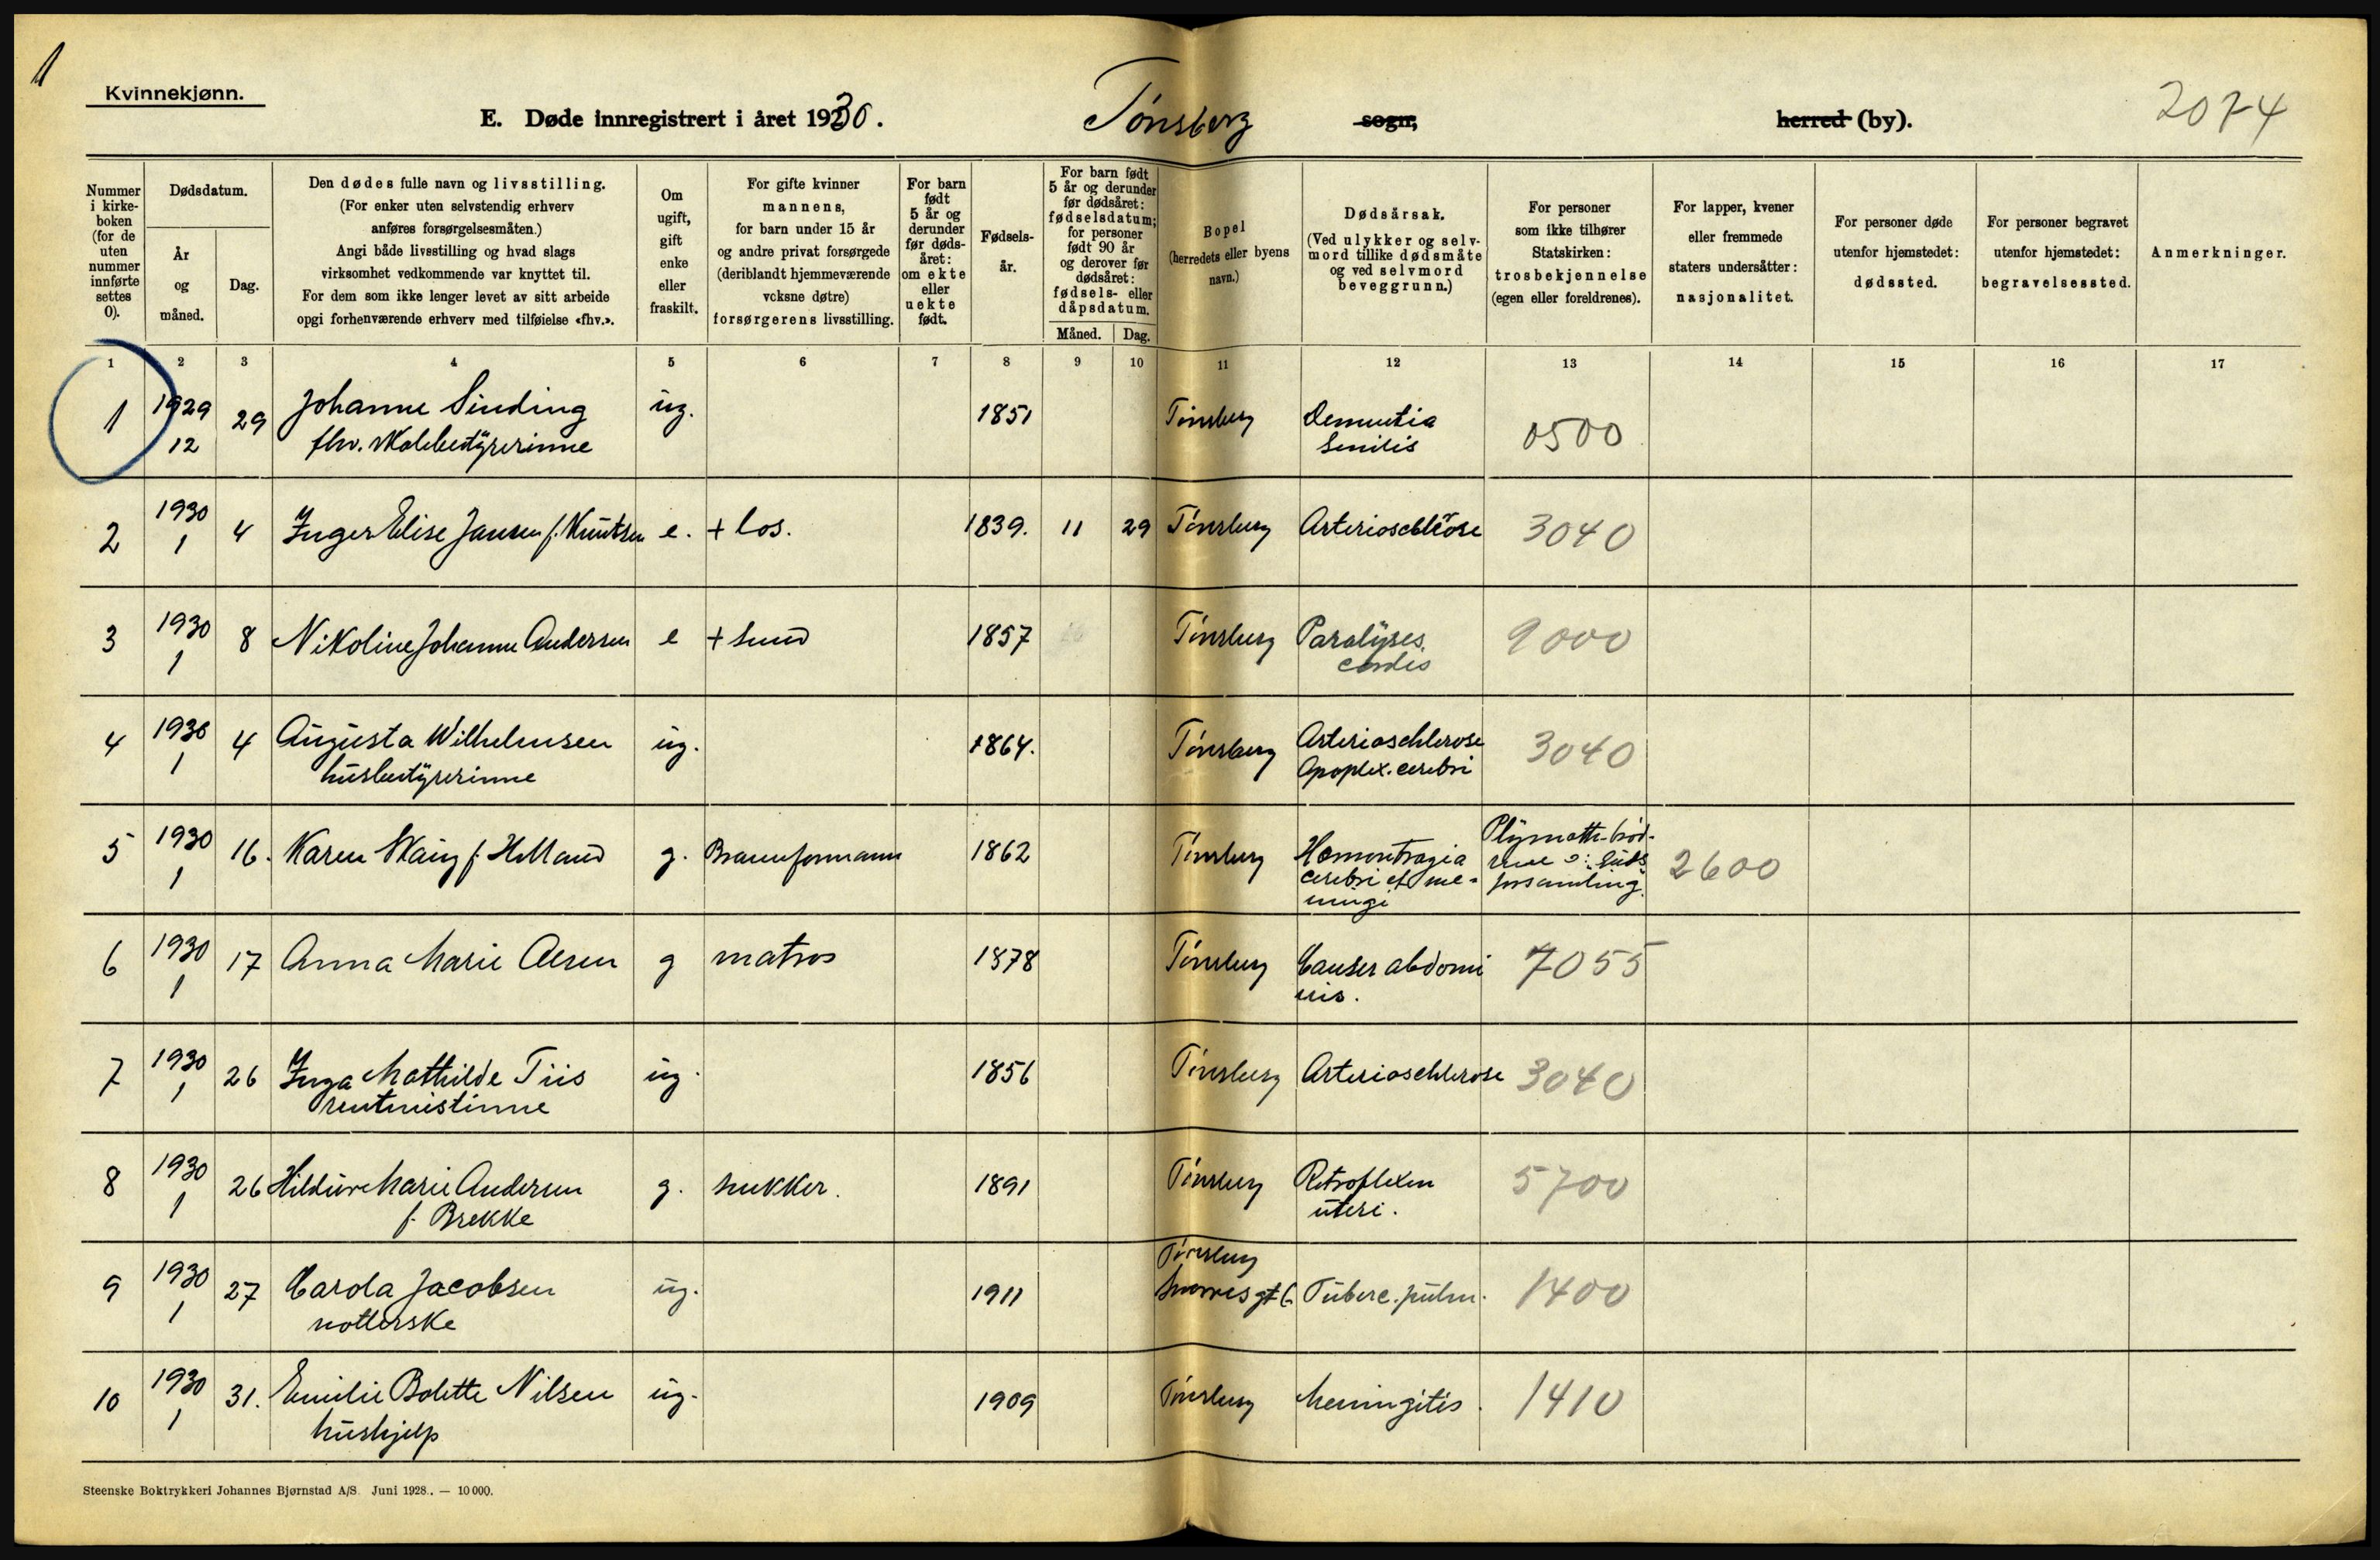 1
Kvinnekjønn.
E. Døde innregistrert i året 1930.
Tønsberg
sogn,
herred (by).
2074
Nummer i kirke-boken (for de uten nummer innførte settes 0).
Dødsdatum.
År og måned.
Dag.
Den dødes fulle navn og livsstilling.
(For enker uten selvstendig erhverv
anføres forsørgelsesmåten.)
Angi både livsstilling og hvad slags
virksomhet vedkommende var knyttet til.
For dem som ikke lenger levet av sitt arbeide
opgi forhenværende erhverv med tilføielse «fhv.».
Om ugift, gift enke eller fraskilt.
For gifte kvinner
mannens,
for barn under 15 år
og andre privat forsørgede
(deriblandt hjemmeværende
voksne døtre)
forsørgerens livsstilling.
For barn født 5 år og derunder før døds-året: om ekte eller uekte født.
Fødsels-år.
For barn født
5 år og derunder
før dødsåret:
fødselsdatum;
for personer
født 90 år
og derover før
dødsåret:
fødsels- eller
dåpsdatum.
Måned.
Dag.
Bopel
(herredets eller byens
navn.)
Dødsårsak.
(Ved ulykker og selv-
mord tillike dødsmåte
og ved selvmord
beveggrunn.)
For personer
som ikke tilhører
Statskirken:
trosbekjennelse
(egen eller foreldrenes).
For lapper, kvener
eller fremmede
staters undersåtter:
nasjonalitet.
For personer døde
utenfor hjemstedet:
dødssted.
For personer begravet
utenfor hjemstedet:
begravelsessted.
Anmerkninger.
1 2 3 4 5 6 7 8 9 10 11 12 13 14 15 16 17
1 1929 29 Johanne Sinding ug. 1851 Tønsberg Dementia 0500
12 fhv. skolebestyrerinne senilis
2 1930 4 Inger Elise Jansen f. Knutsen e. + los. 1839. 11 29 Tønsberg Arterioschlerose 3040
1
3 1930 8 Nikoline Johanne Andersen e + smed 1857 Tønsberg Paralyses. 9000
1 cordis
4 1930 4 Augusta Wilhelmsen ug. 1864. Tønsberg Arterioschlerose 3040
1 husbestyrerinne Apoplex. cerebri
5 1930 16. Karen Skaug f. Holland g. Brannformann 1862 Tønsberg Hæmorrhagia Plymoth-brød-
1 cerebri et me- rene ɔ: Guds 2600
ningi forsamling.
6 1930 17 Anna Marie Olsen g matros 1878 Tønsberg Canser abdomi 7055
1 nis.
7 1930 26 Inga Mathilde Tiis ug. 1856 Tønsberg Arterioschlerose 3040
1 rentenistinne
8 1930 26 Hildur Marie Andersen g. snekker. 1891 Tønsberg Retroflexen 5700
1 f. Brekke uteri.
9 1930 27 Carola Jacobsen ug. 1911 Tønsberg
1 notterske Snorresgt 6 Tuberc. pulm. 1400
10 1930 31. Emilie Bolette Nilsen ug. 1909 Tønsberg Meningitis. 1410
1 hushjelp
Steenske Boktrykkeri Johannes Bjørnstad A/S. Juni 1928. — 10 000.